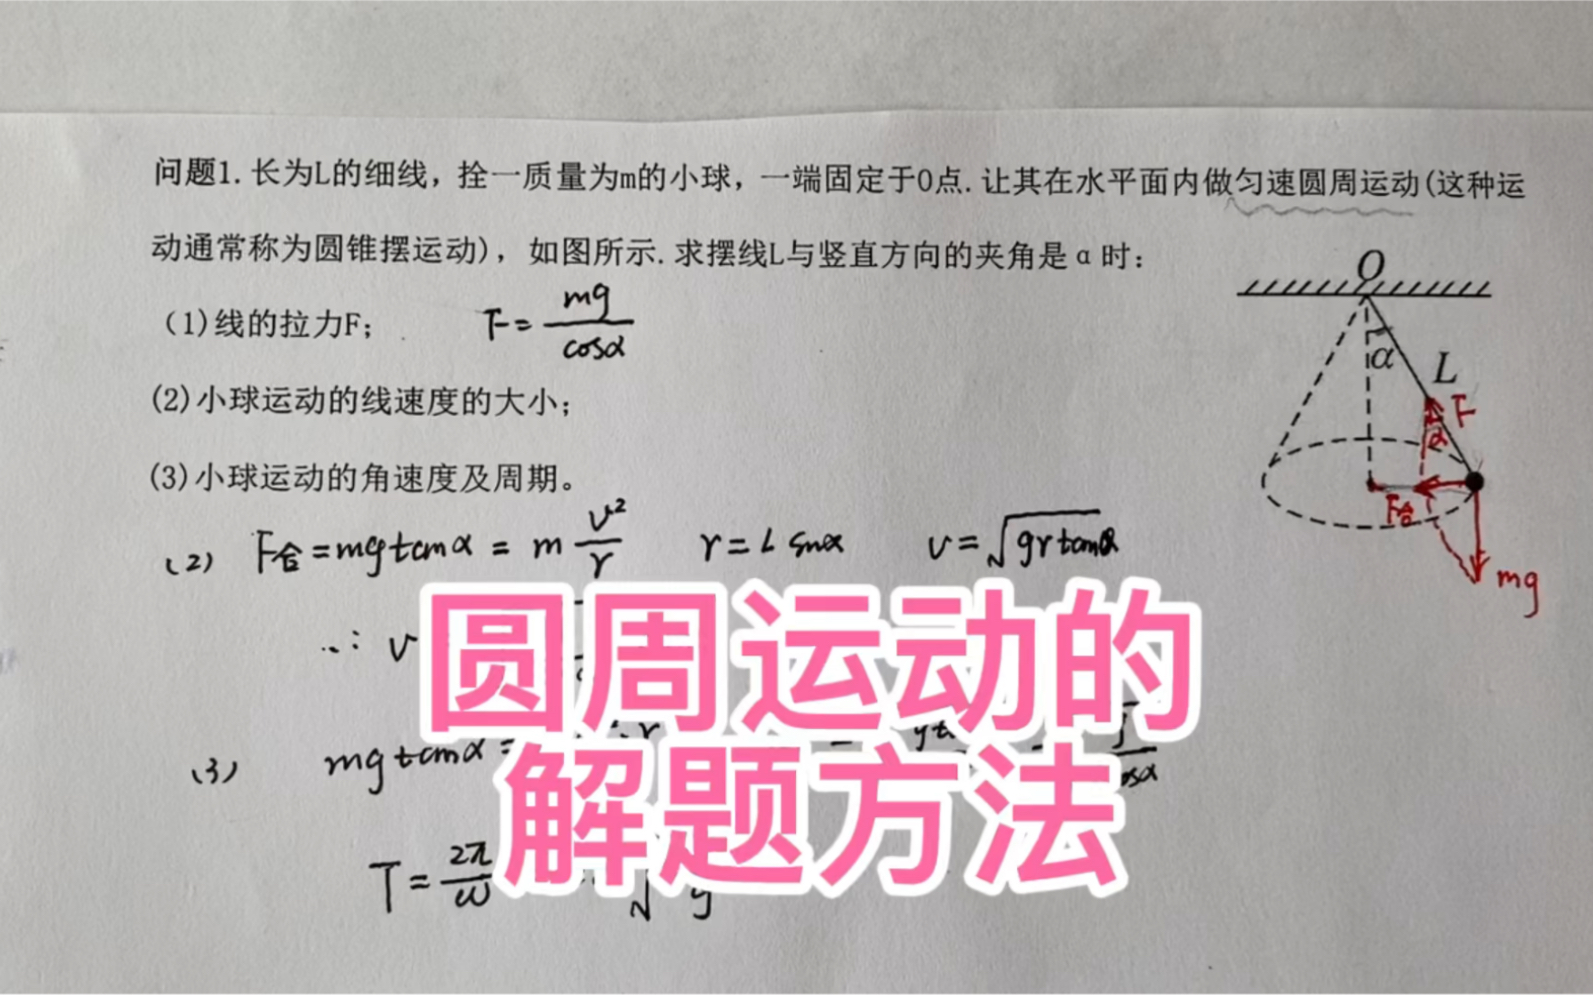 问题1.长为L的细线，拴一质量为m的小球，一端固定于O点.让其在水平面内做匀速圆周运动(这种运
动通常称为圆锥摆运动)，如图所示.求摆线L与竖直方向的夹角是α时：
(1)线的拉力F；
F=mg/cosα
(2)小球运动的线速度的大小；
(3)小球运动的角速度及周期。
(2) F合=mgtanα=m v²/r r=Lsinα v=√grtanα
∴ v
(3) mgtanα=
T=2π/ω
O
α
L
F
α
F合
mg
圆周运动的
解题方法